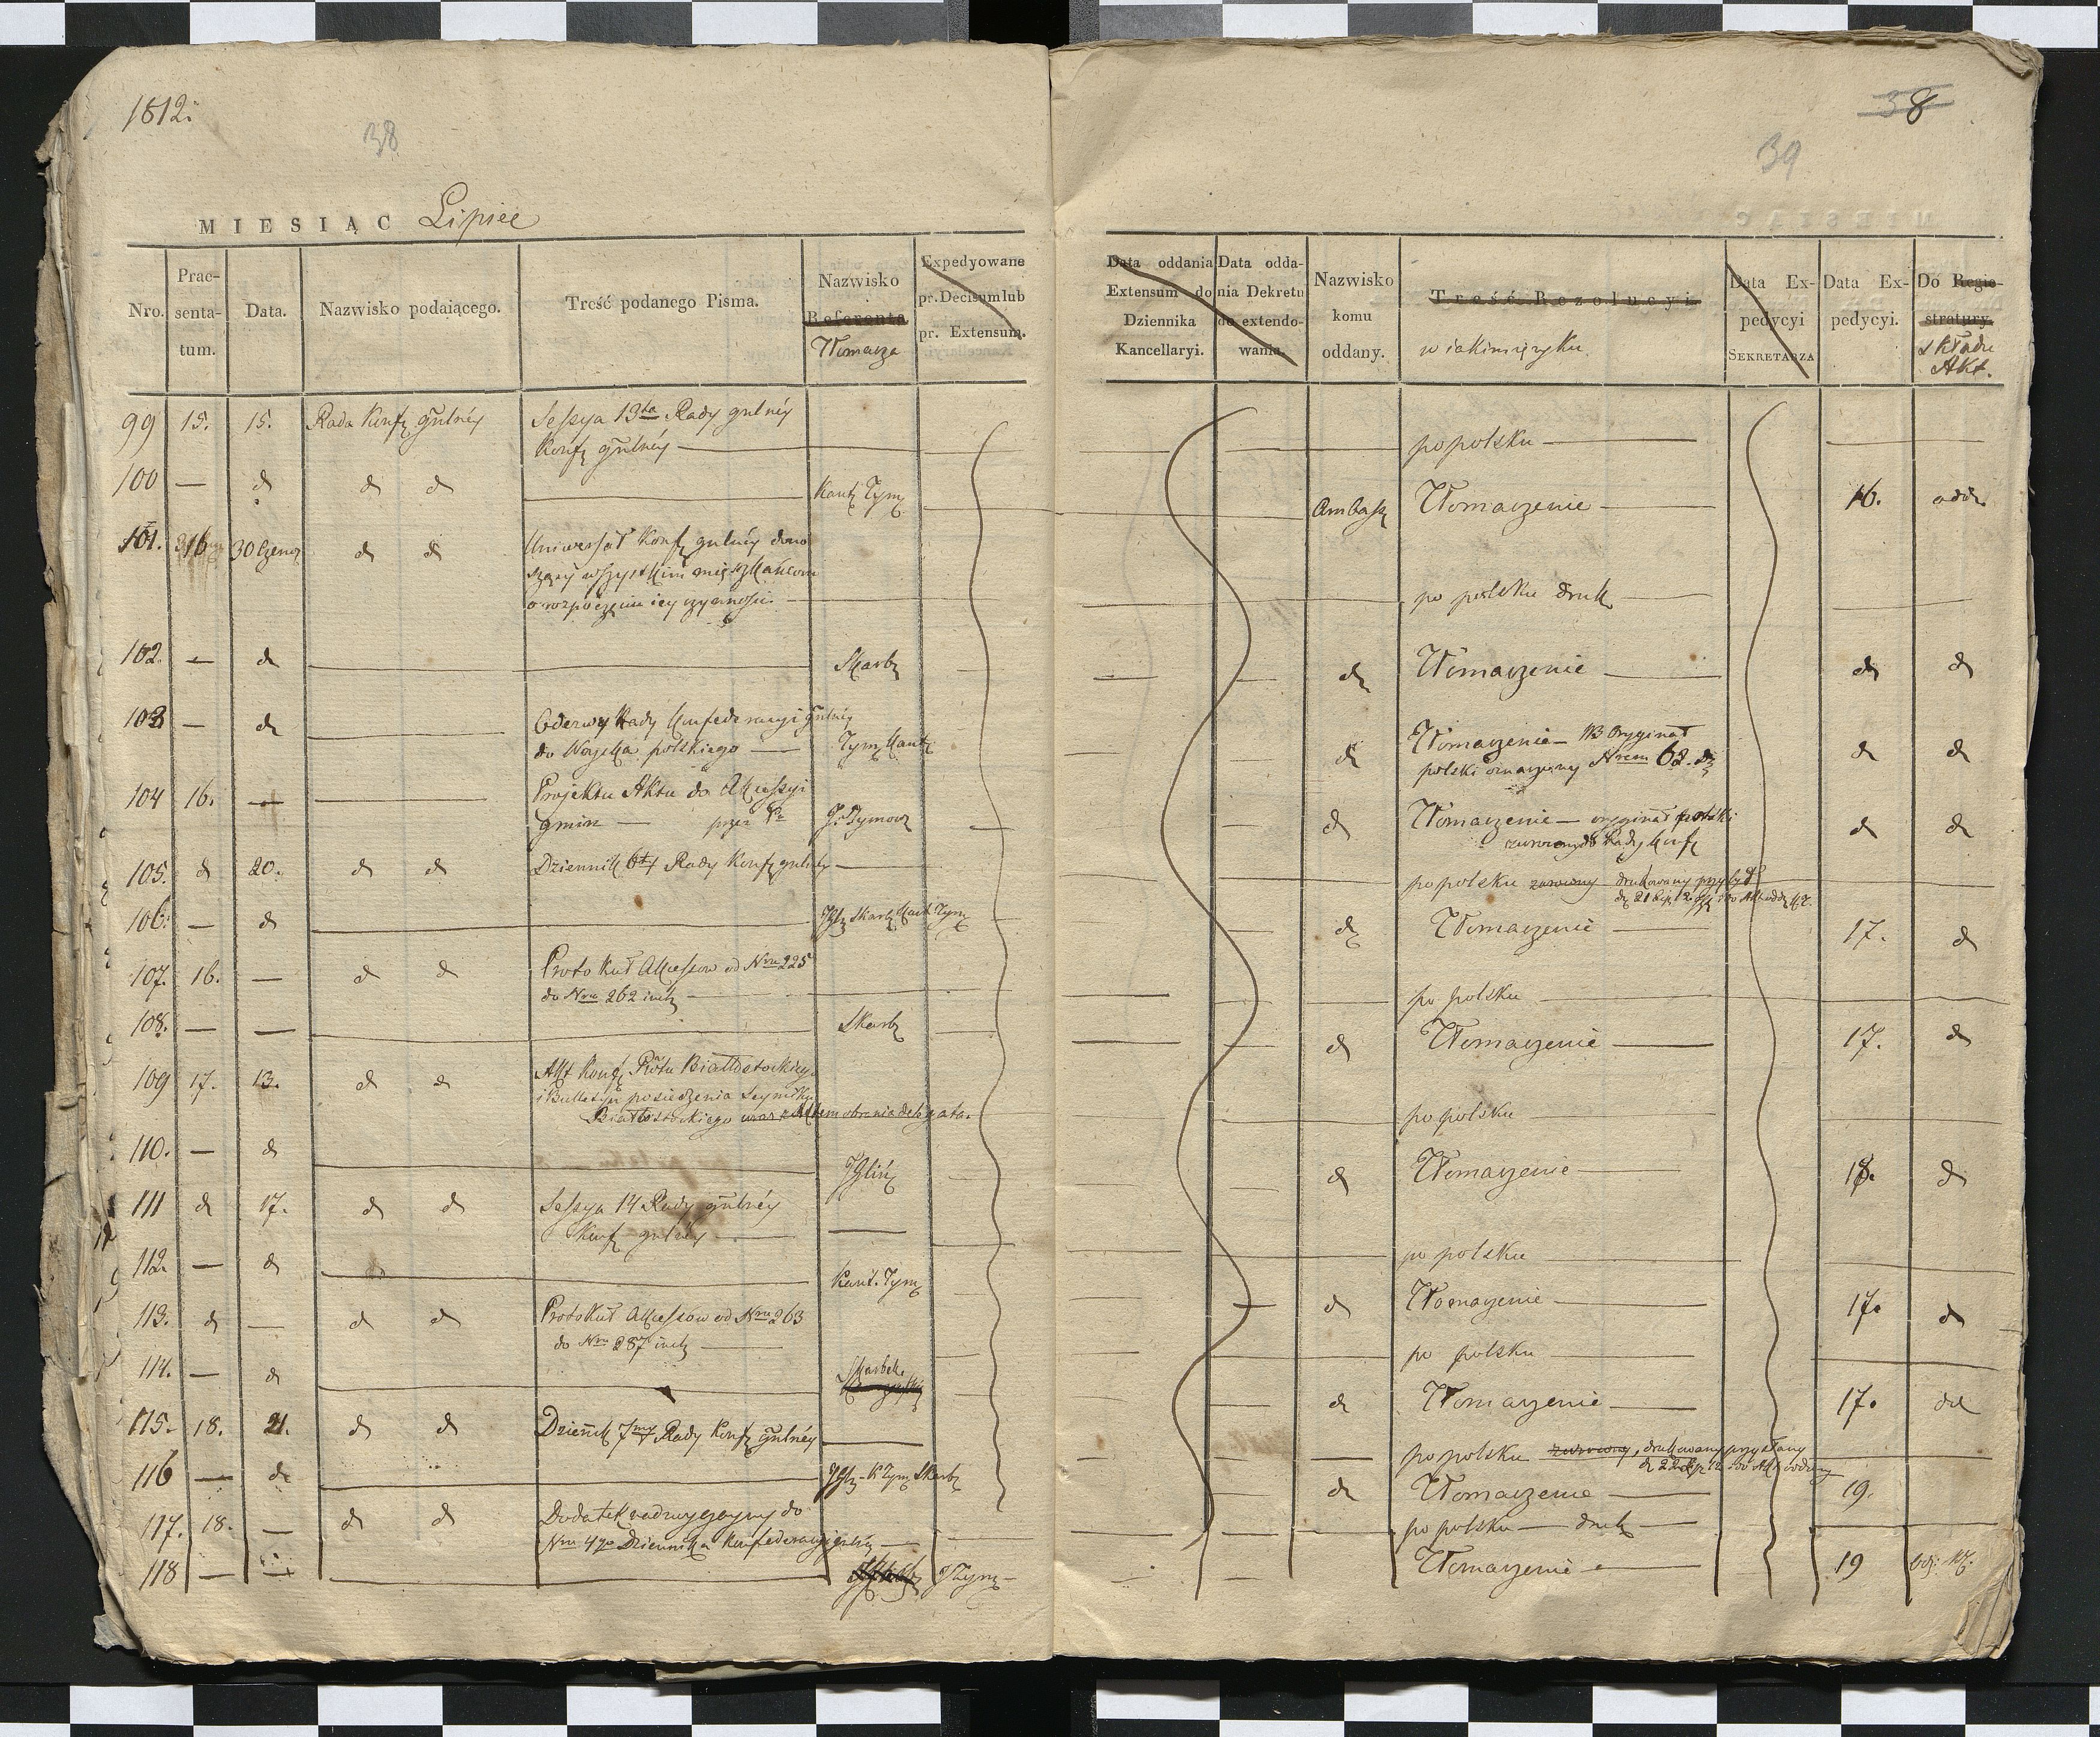 1812.
38
MIESIĄC Lipiec
Nro.
Prae-
senta-
tum.
Data.
Nazwisko podaiącego.
Treść podanego Pisma.
Nazwisko
Referenta
Tłomacza
Expedyowane
pr. Decisum lub
pr. Extensum.
99 15. 15. Rada Konf gūlnéy Sessya 13ta Rady gnlnéy
Konf gūlnéy
100 — d d d Kant Tym
101. 16 30 Czerw d d Uniwersał Konf gulnéy dono
szący wszystkim mieszkańcom
o rozpoczęciu iey czynności
102. — d Skarb
103 — d Odezwy Rady Konfederacyi gūlnéy
do Woyska polskiego — Tym Kant
104 16. — Projektu Aktu do Akcessyi
gmin — przez J. Tymow
105. d 20. d d Dziennik 6ty Rady Konf gulnéy
106. — d Skarb Kant Tym
107. 16. — d d Protokuł Akcessow od Nru 225
do Nru 262 incl
108. — — Skarb
109 17. 13. d d Akt Konf Pttu Białłostockiego
i Bulletyn posiedzenia Seymiku
Białłostockiego wraz z aktem obrania delegata.
110. — d JGliń
111 d 17. d d Sessya 14 Rady gūlnéy
Konf gulnéy
112. — d Kant. Tym
113. d — d d Protokuł Akcessów od Nru 263
do Nru 287 incl
114. — d Skarbek.
115. 18. 21. d d Dzieńik 7my Rady Konf gūlnéy
116 — d K Tym Skarb
117. 18. — d d Dodatek nadzwyczayny do
Nru 4go Dziennika Konfederacyi gulnéy —
118 — — JTym —
38
39
Data oddania
Extensum do
Dziennika
Kancellaryi.
Data odda-
nia Dekretu
do extendo-
wania.
Nazwisko
komu
oddany.
Treść Rezolucyi
w iakim ięzyku
Data Ex-
pedycyi
SEKRETARZA
Data Ex-
pedycyi.
Do Regie-
stratury.
składu
Akt.
po polsku —
Ambass Tłomaczenie — 16. odd
po polsku druk —
d Tłomaczenie — d d
d Tłomaczenie — NB Oryginał
polski oznaczony Nrem 62. d d
d Tłomaczenie — oryginał polski
zwrocony do Rady Konf d d
po polsku zwrocony drukowany przybył
d 21 Lip 12
d Tłomaczenie — 17. d
po polsku —
d Tłomaczenie — 17. d
po polsku —
d Tłomaczenie — 18. d
po polsku —
d Tłomaczenie — 17. d
po polsku —
d Tłomaczenie — 17. dd
po polsku zwrocony, drukowany przysłany
d 22 Lip 12
d Tłomaczenie — 19.
po polsku — druk —
Tłomaczenie — 19